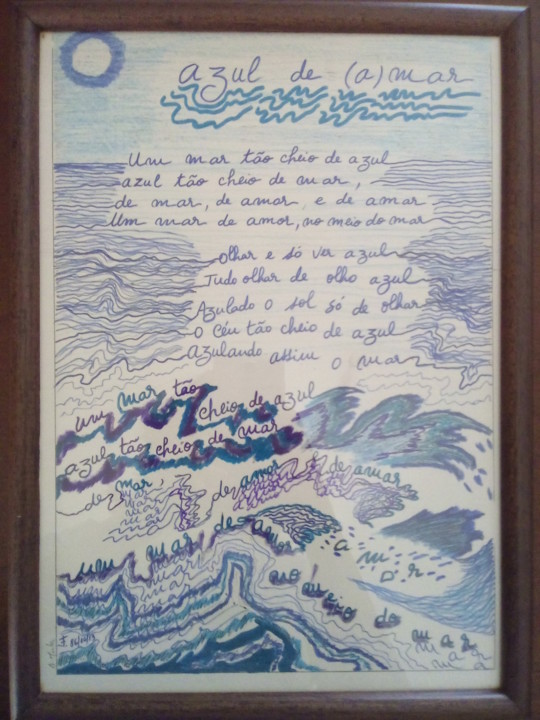 azul de (a)mar
Um mar tão cheio de azul
azul tão cheio de mar,
de mar, de amar, e de amar
Um mar de amor, no meio do mar
Olhar e só ver azul
Tudo olhar de olho azul
Azulado o sol só de olhar
O céu tão cheio de azul
Azulando assim o mar
um mar tão
cheio de azul
azul tão cheio de mar
de mar,
mar
mar
mar
de amor
de amar
um mar de amor
mar
mar
mar
amor
no meio do
mar
mar